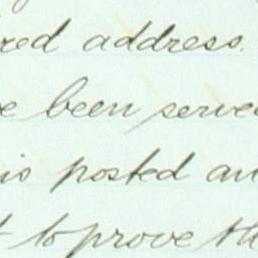 red address.
e been served
is posted an
t to prove th